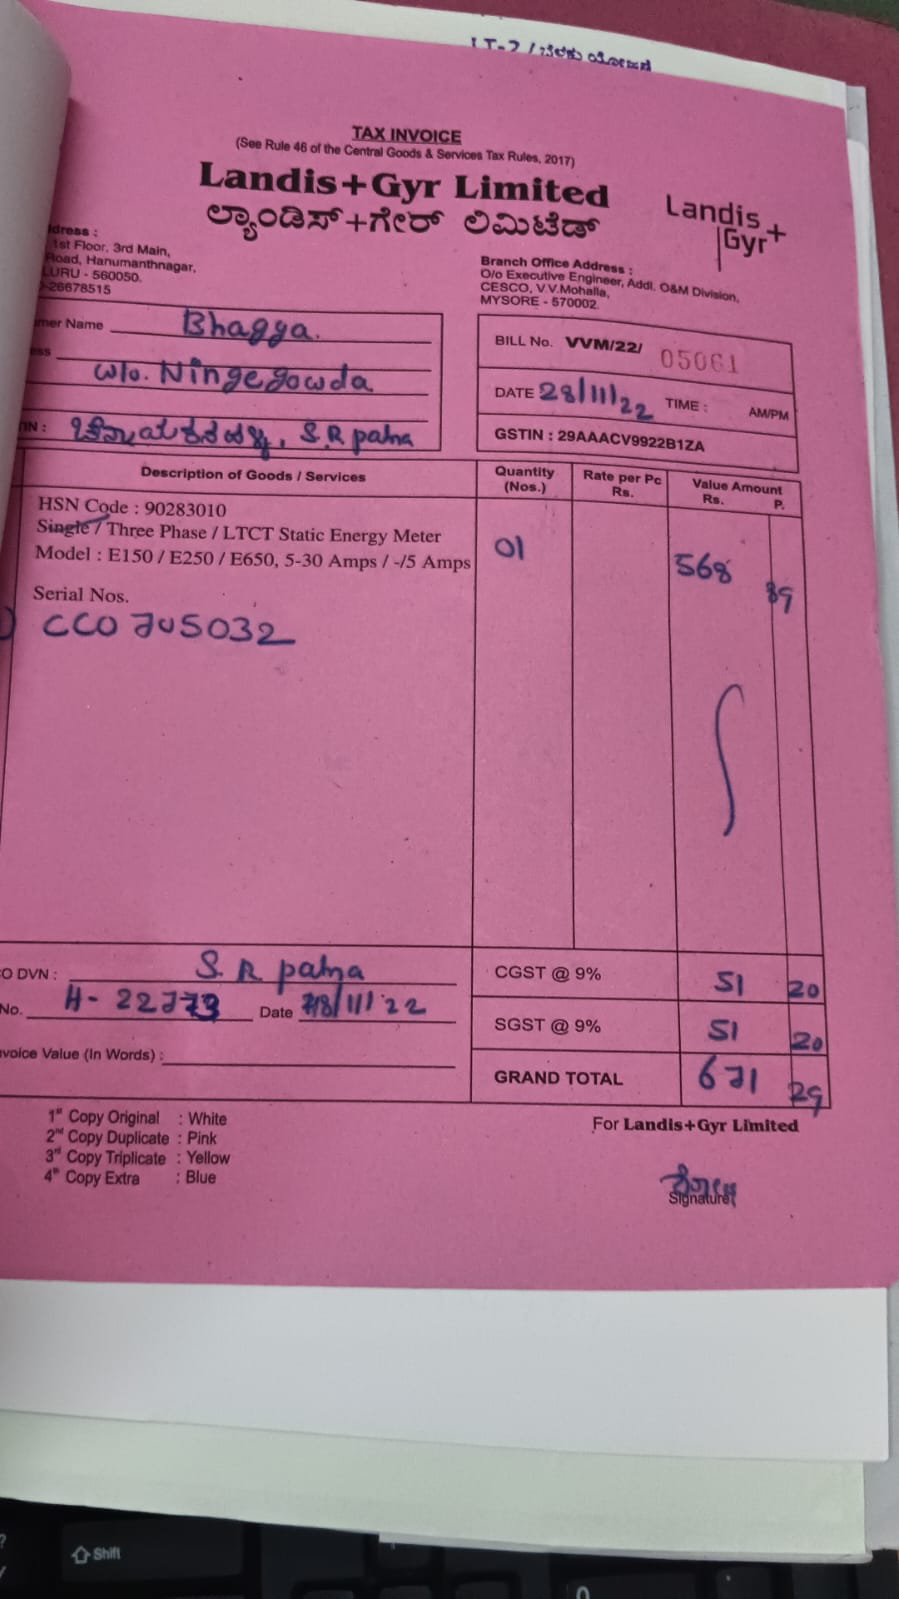 LT-2 /
TAX INVOICE
(See Rule 46 of the Central Goods & Services Tax Rules, 2017)
Landis+Gyr Limited
ಲ್ಯಾಂಡಿಸ್+ಗೇರ್ ಲಿಮಿಟೆಡ್
Landis
Gyr+
dress :
1st Floor, 3rd Main,
Road, Hanumanthnagar,
LURU - 560050.
-26678515
Branch Office Address :
O/o Executive Engineer, Addl. O&M Division,
CESCO, V.V.Mohalla,
MYSORE - 570002.
mer Name Bhagya.
ess W/o. Ningegowda
IN : S.R patna
BILL No. VVM/22/ 05061
DATE 28/11/22 TIME : AM/PM
GSTIN : 29AAACV9922B1ZA
Description of Goods / Services Quantity (Nos.) Rate per Pc Rs. Value Amount Rs. P.
HSN Code : 90283010
Single / Three Phase / LTCT Static Energy Meter
Model : E150 / E250 / E650, 5-30 Amps / -/5 Amps 01 568 89
Serial Nos.
O DVN : S. R patna
No. H- 22773 Date 28/11/22
voice Value (In Words) :
CGST @ 9% 51 20
SGST @ 9% 51 20
GRAND TOTAL 671 29
1st Copy Original : White
2nd Copy Duplicate : Pink
3rd Copy Triplicate : Yellow
4th Copy Extra : Blue
For Landis+Gyr Limited
Signature
Shift